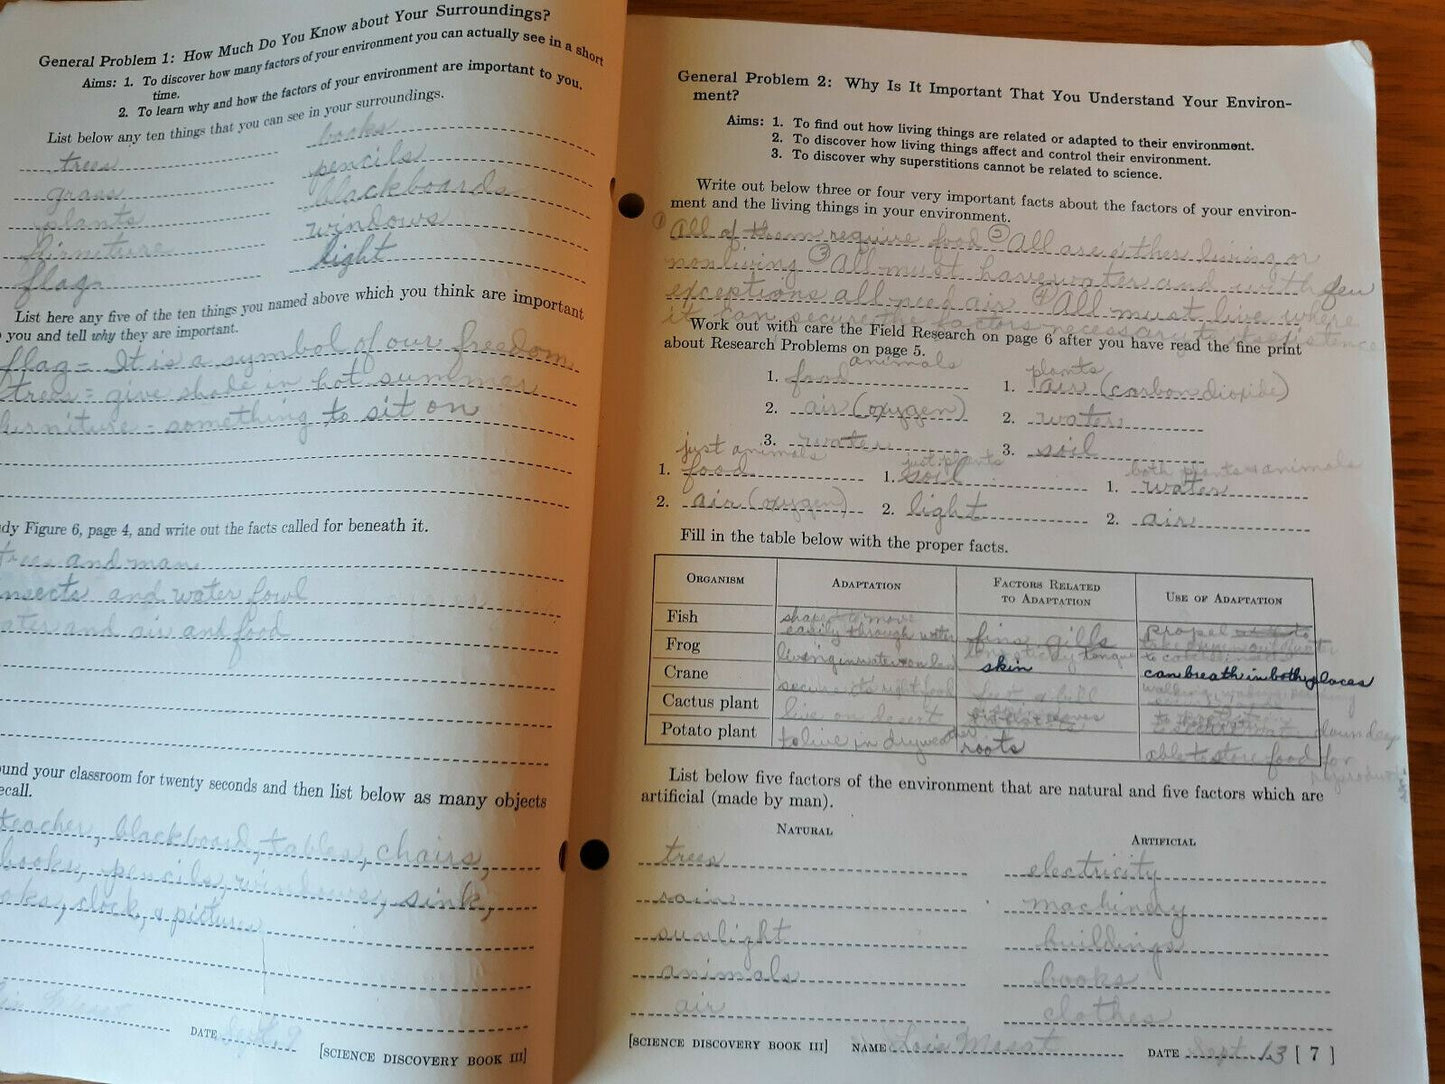 General Problem 1: How Much Do You Know about Your Surroundings?
Aims: 1. To discover how many factors of your environment you can actually see in a short
time.
2. To learn why and how the factors of your environment are important to you.
List below any ten things that you can see in your surroundings.
trees books
grass pencils
plants blackboards
furniture windows
flag light
List here any five of the ten things you named above which you think are important
you and tell why they are important.
flag = It is a symbol of our freedom
trees = give shade in hot summer
furniture = something to sit on
dy Figure 6, page 4, and write out the facts called for beneath it.
trees and man
nsects and water fowl
ater and air and food
ound your classroom for twenty seconds and then list below as many objects
ecall.
teacher, blackboard, tables, chairs,
books, pencils, windows, sink,
clock, & pictures
DATE Sept. 9
[SCIENCE DISCOVERY BOOK III]
General Problem 2: Why Is It Important That You Understand Your Environ-
ment?
Aims: 1. To find out how living things are related or adapted to their environment.
2. To discover how living things affect and control their environment.
3. To discover why superstitions cannot be related to science.
Write out below three or four very important facts about the factors of your environ-
ment and the living things in your environment.
① All of them require food ② All are either living or
nonliving ③ All must have water and with few
exceptions all need air ④ All must live where
it can secure the factors necessary to existence
Work out with care the Field Research on page 6 after you have read the fine print
about Research Problems on page 5.
animals plants
1. food 1. air (carbon dioxide)
2. air (oxygen) 2. water
3. water 3. soil
just animals just plants both plants & animals
1. food 1. soil 1. water
2. air (oxygen) 2. light 2. air
Fill in the table below with the proper facts.
ORGANISM ADAPTATION FACTORS RELATED TO ADAPTATION USE OF ADAPTATION
Fish shape to move easily through water fins gills propel
Frog living in water on land long sticky tongue skin can breath in both places
Crane secure its right food
Cactus plant live on desert
Potato plant to live in dry weather roots able to store food for
List below five factors of the environment that are natural and five factors which are
artificial (made by man).
NATURAL ARTIFICIAL
trees electricity
rain machinery
sunlight buildings
animals books
air clothes
[SCIENCE DISCOVERY BOOK III] NAME Lois Masat DATE Sept. 13 [ 7 ]